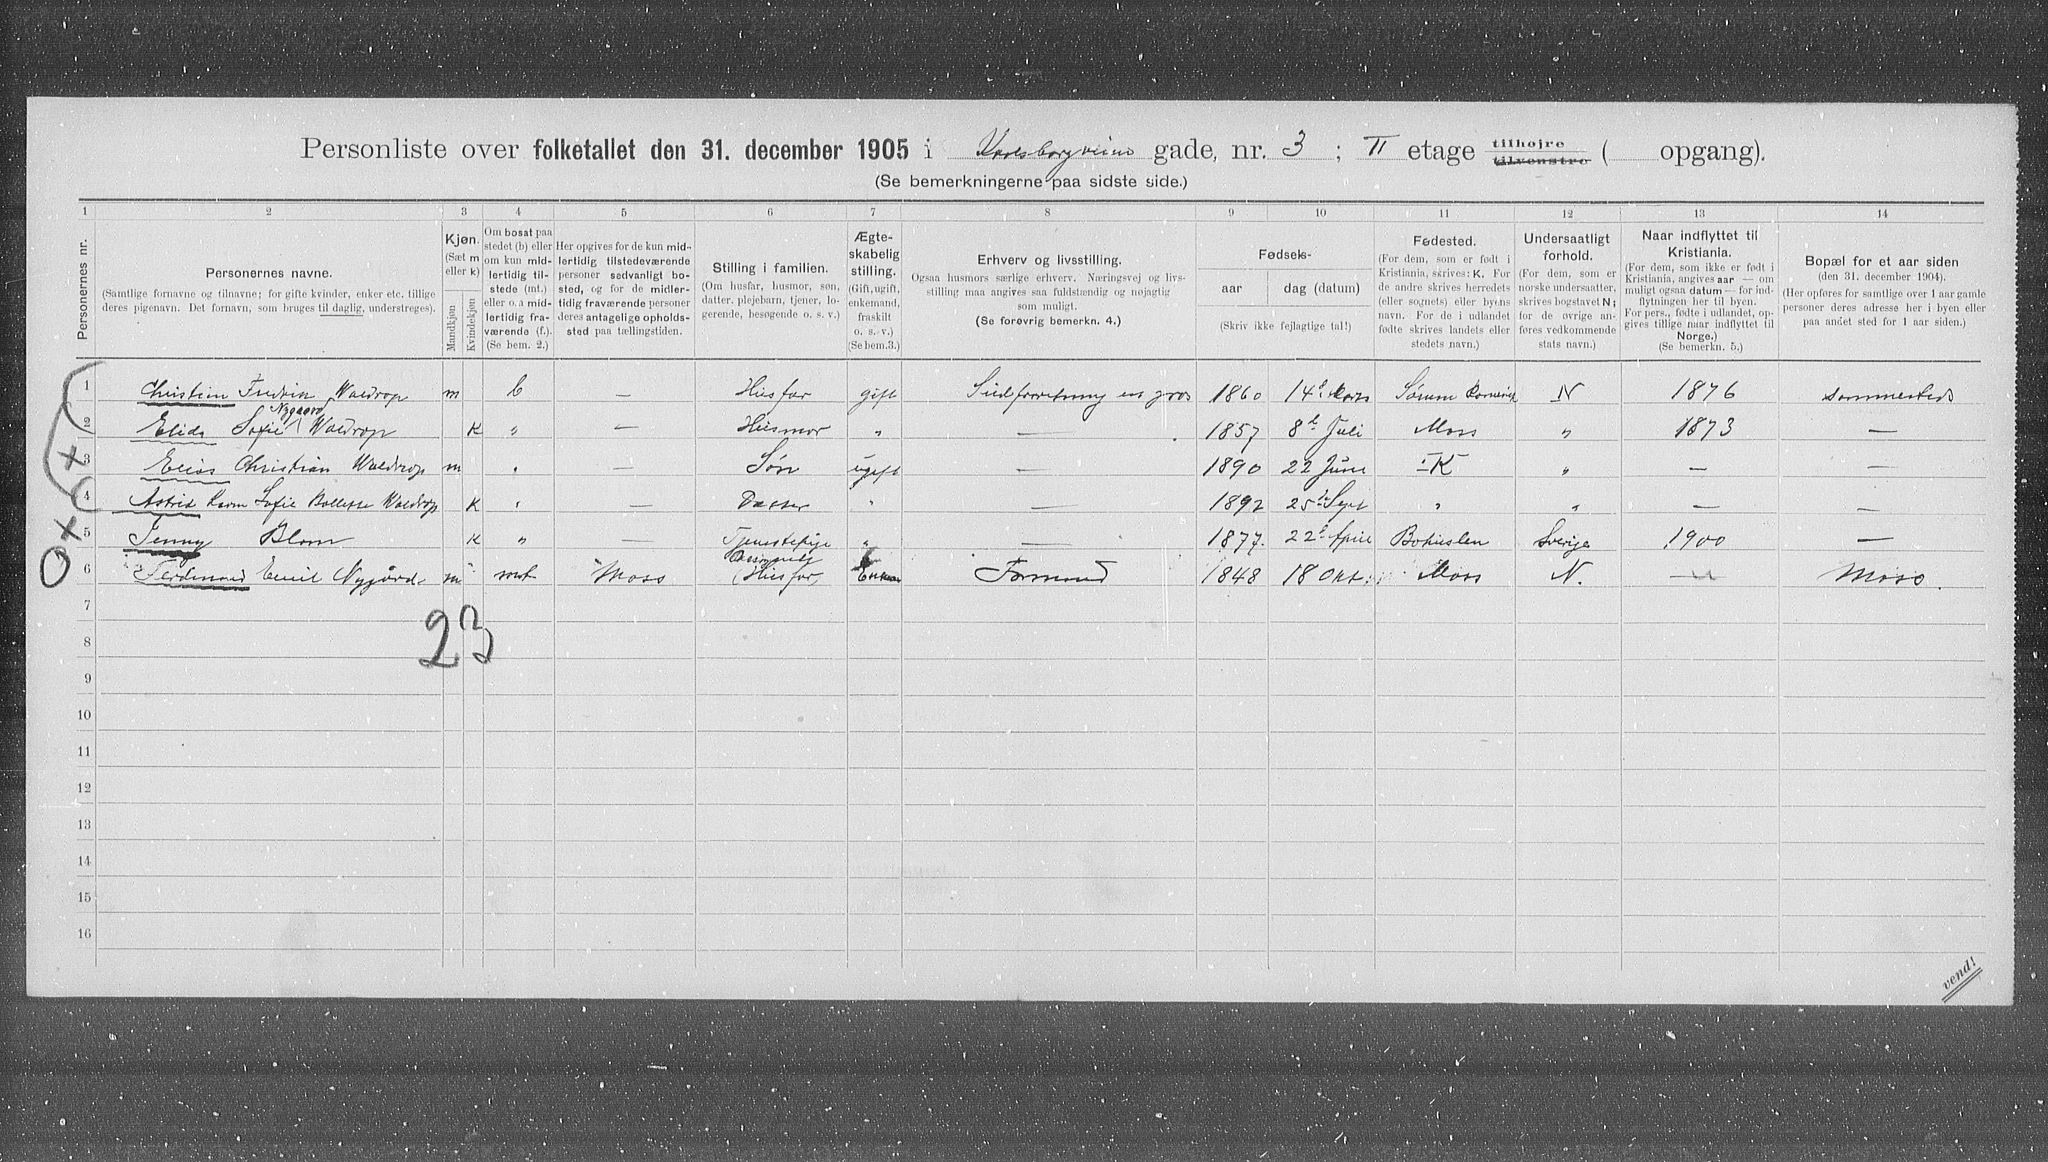 Personliste over folketallet den 31. december 1905 i gade, nr. 3 ; II etage tilhøjre tilvenstre ( opgang).
(Se bemerkningerne paa sidste side.)
1 2 3 4 5 6 7 8 9 10 11 12 13 14
Personernes nr.
Personernes navne.
(Samtlige fornavne og tilnavne; for gifte kvinder, enker etc. tillige
deres pigenavn. Det fornavn, som bruges til daglig, understreges).
Kjøn.
(Sæt m
eller k)
Mandkjøn
Kvindekjøn
Om bosat paa
stedet (b) eller
om kun mid-
lertidig til-
stede (mt.)
eller o.a mid-
lertidig fra-
værende (f.).
(Se bem. 2.)
Her opgives for de kun mid-
lertidig tilstedeværende
personer sedvanligt bo-
sted, og for de midler-
tidig fraværende personer
deres antagelige opholds-
sted paa tællingstiden.
Stilling i familien.
(Om husfar, husmor, søn,
datter, plejebarn, tjener, lo-
gerende, besøgende o. s. v.)
Ægte-
skabelig
stilling.
(Gift, ugift,
enkemand,
fraskilt
o. s. v.)
(Se bem.3.)
Erhverv og livsstilling.
Ogsaa husmors særlige erhverv. Næringsvej og livs-
stilling maa angives saa fuldstændig og nøjagtig
som muligt.
(Se forøvrig bemerkn. 4.)
Fødsels-
aar dag (datum)
(Skriv ikke fejlagtige tal!)
Fødested.
(For dem, som er født i
Kristiania, skrives: K. For
de andre skrives herredets
(eller sognets) eller byens
navn. For de i udlandet
fødte skrives landets eller
stedets navn.)
Undersaatligt
forhold.
(For dem, som er
norske undersaatter,
skrives bogstavet N;
for de øvrige an-
føres vedkommende
stats navn.)
Naar indflyttet til
Kristiania.
(For dem, som ikke er født i
Kristiania, angives aar — om
muligt ogsaa datum — for ind-
flytningen her til byen.
For pers., fødte i udlandet, op-
gives tillige naar indflyttet til
Norge.)
(Se bemerkn. 5.)
Bopæl for et aar siden
(den 31. december 1904).
(Her opføres for samtlige over 1 aar gamle
personer deres adresse her i byen eller
paa andet sted for 1 aar siden.)
1 Christian Fredrik Waldrop m b — Husfar gift en gros 1860 14d Marts N 1876 sammesteds
2 Elida Sofie Nygaard Waldrop K " — Husmor " — 1857 8d Juli Moss " 1873 —
3 Christian Waldrop m " — Søn ugift — 1890 22 Juni K " — —
4 Astrid Sofie Waldrop K " — Datter " — 1892 25d Sept " " — —
5 Jenny Blom K " — Tjenestepige " — 1877 22d April Bohuslen Sverige 1900 —
6 Ferdinand Emil Nygård m mt Moss (Husfar) Formand 1848 18 Okt. Moss N. — Moss.
23
7
8
9
10
11
12
13
14
15
16
vend!